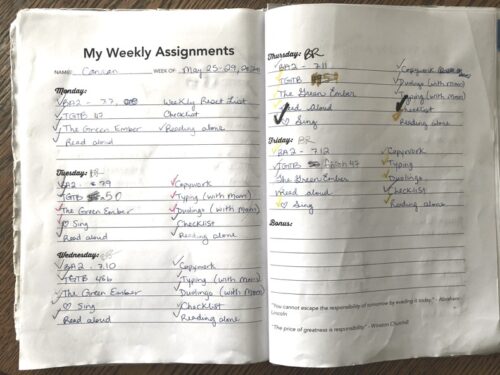 My Weekly Assignments
NAME: WEEK OF May 25-29,
Monday:
BA2 - 7.7, Weekly React List
TGTB 47 Checklist
The Green Ember Reading alone
Read aloud
Tuesday: BR
BA2 - 79 Copywork
TGTB 50 Typing (with Mom)
The Green Ember Duolingo (with Mom)
♡ Sing Checklist
Read aloud Reading alone
Wednesday:
BA2 - 7.10 Copywork
TGTB Typing (with Mom)
The Green Ember Duolingo (with Mom)
♡ Sing Checklist
Read aloud Reading alone
Thursday: BR
BA2 - 7.11 Copywork
TGTB Duolingo (with Mom)
The Green Ember Typing (with Mom)
Read Aloud Checklist
♡ Sing Reading alone
Friday: BR
BA2 - 7.12 Copywork
TGTB Typing
The Green Ember Duolingo
Read aloud Checklist
♡ Sing Reading alone
Bonus:
"You cannot escape the responsibility of tomorrow by evading it today." - Abraham
Lincoln
"The price of greatness is responsibility" - Winston Churchill